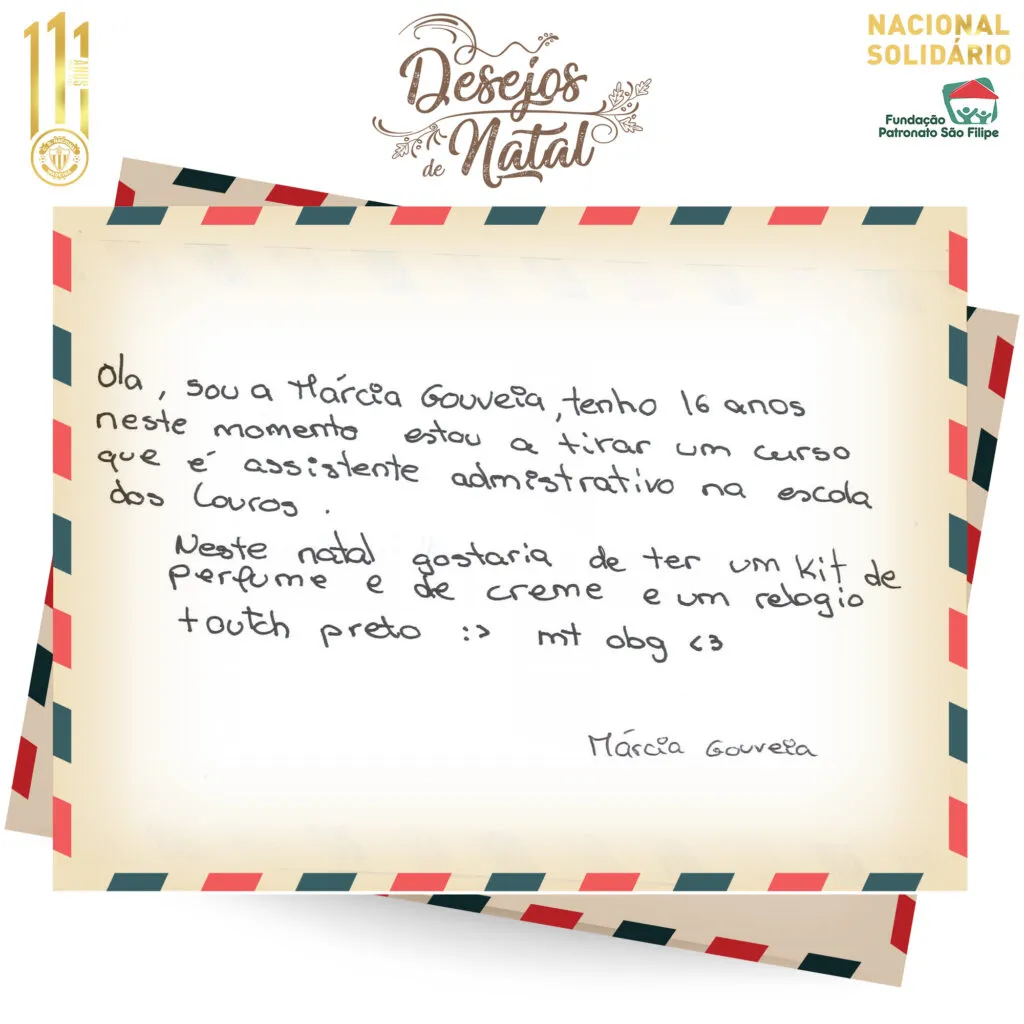 111 ANOS
Desejos
de Natal
NACIONAL
SOLIDÁRIO
Fundação
Patronato São Filipe
Ola, sou a Márcia Gouveia, tenho 16 anos
neste momento estou a tirar um curso
que é assistente admistrativo na escola
dos Louros.
Neste natal gostaria de ter um Kit de
perfume e de creme e um relogio
toutch preto :> mt obg <3
Márcia Gouveia